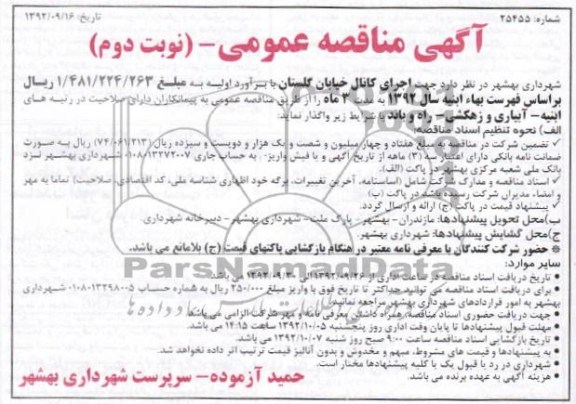 شماره: ۲۵۴۵۵
تاریخ: ۱۳۹۲/۰۹/۱۶
آگهی مناقصه عمومی- (نوبت دوم)
شهرداری بهشهر در نظر دارد جهت اجرای کانال خیابان گلستان با برآورد اولیه به مبلغ ۱/۴۸۱/۲۲۴/۲۶۳ ریال
براساس فهرست بهاء ابنیه سال ۱۳۹۲ به مدت ۳ ماه را از طریق مناقصه عمومی به پیمانکاران دارای صلاحیت در رشته های
ابنیه- آبیاری و زهکشی- راه و باند با شرایط زیر واگذار نماید:
الف) نحوه تنظیم اسناد مناقصه:
✓ تضمین شرکت در مناقصه به مبلغ هفتاد و چهار میلیون و شصت و یک هزار و دویست و سیزده ریال (۷۴/۰۶۱/۲۱۳) ریال به صورت
ضمانت نامه بانکی دارای اعتبار سه (۳) ماهه از تاریخ آگهی و یا فیش واریز، به حساب جاری ۰۱۰۸۰۱۳۲۷۲۰۰۷ شهرداری بهشهر نزد
بانک ملی شعبه مرکزی بهشهر در پاکت (الف).
✓ اسناد مناقصه و مدارک شرکت شامل (اساسنامه، آخرین تغییرات، برگه خود اظهاری شناسه ملی، کد اقتصادی، صلاحیت) تماما به مهر
و امضاء مدیران شرکت رسیده باشد در پاکت (ب)
✓ پیشنهاد قیمت در پاکت (ج) ارائه و ارسال گردد.
ب)محل تحویل پیشنهادها: مازندران- بهشهر- پارک ملت- شهرداری بهشهر- دبیرخانه شهرداری
ج)محل گشایش پیشنهادها: شهرداری بهشهر
* حضور شرکت کنندگان با معرفی نامه معتبر در هنگام بازگشایی پاکتهای قیمت (ج) بلامانع می باشد.
سایر موارد:
* تاریخ دریافت اسناد مناقصه در ساعات اداری از ۱۳۹۲/۰۹/۲۶ الی ۱۳۹۲/۰۹/۳۰ می باشد.
* برای دریافت اسناد مناقصه می توانید حداکثر تا تاریخ فوق با واریز مبلغ ۲۵۰/۰۰۰ ریال به شماره حساب ۰۱۰۸۰۱۳۲۹۸۰۰۵ شهرداری
بهشهر به امور قراردادهای شهرداری بهشهر مراجعه نمائید.
* جهت دریافت حضوری اسناد مناقصه، همراه داشتن معرفی نامه و مهر شرکت الزامی می باشد.
* مهلت قبول پیشنهادها تا پایان وقت اداری روز پنجشنبه ۱۳۹۲/۱۰/۰۵ ساعت ۱۴:۱۵ می باشد.
* تاریخ بازگشایی اسناد مناقصه ساعت ۹:۰۰ صبح روز شنبه ۱۳۹۲/۱۰/۰۷ می باشد.
* به پیشنهادها و قیمت های مشروط، مبهم و مخدوش و بدون آنالیز قیمت ترتیب اثر داده نخواهد شد.
* شهرداری در رد یا قبول یک یا کلیه پیشنهادها مختار است.
* هزینه آگهی به عهده برنده می باشد.
حمید آزموده- سرپرست شهرداری بهشهر
ParsNamadData